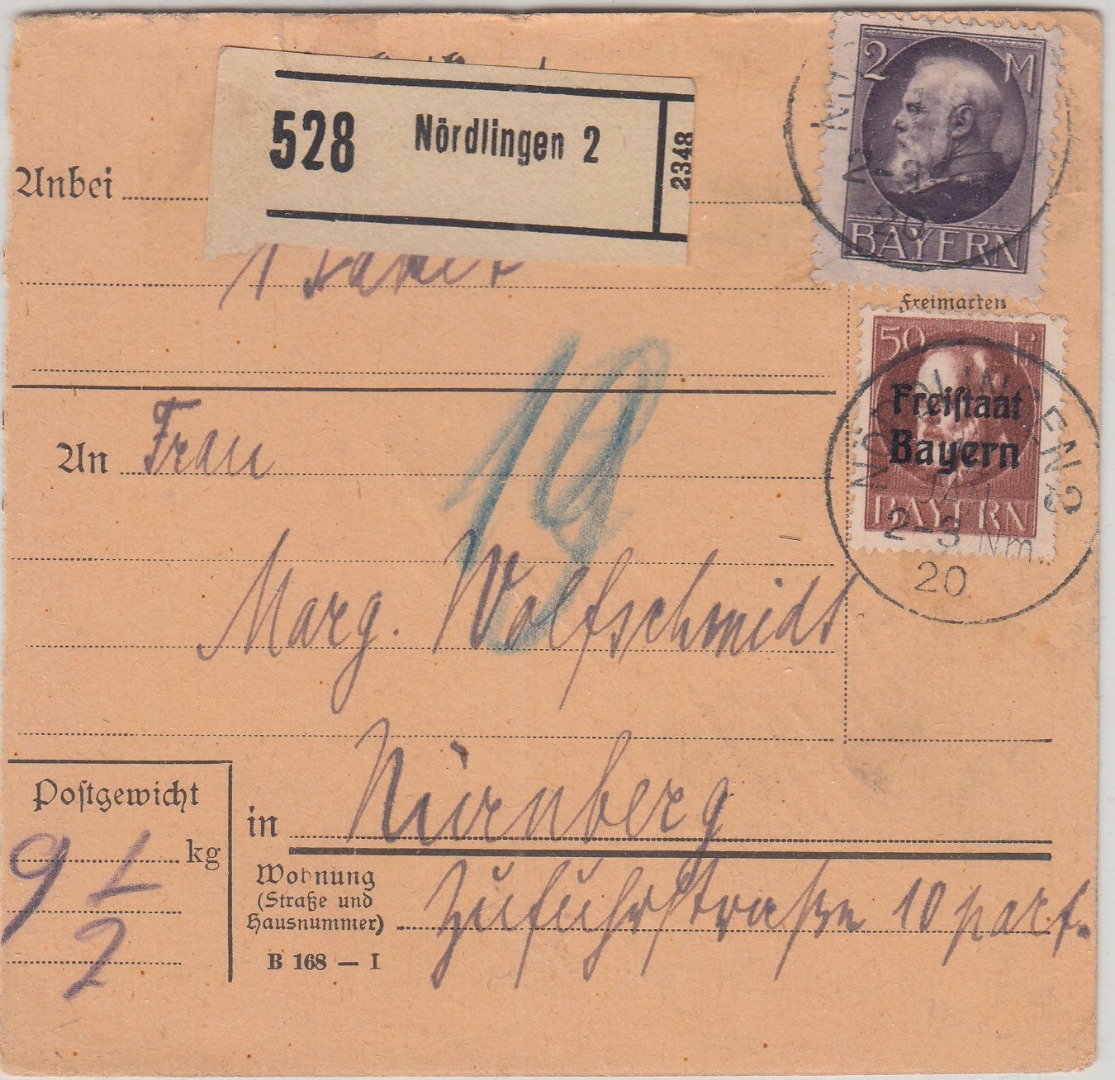 528 Nördlingen 2 2348
2 M
BAYERN
Anbei
1 Paket
Freimarken
50 Pf
Freistaat
Bayern
BAYERN
NÖRDLINGEN 2
JAN
2-3 Nm.
20
19
An Frau
Marg. Wolfschmidt
Postgewicht
9 1/2 kg
in Nürnberg
Wohnung
(Straße und
Hausnummer) Zufuhrstraße 10 part.
B 168 — I